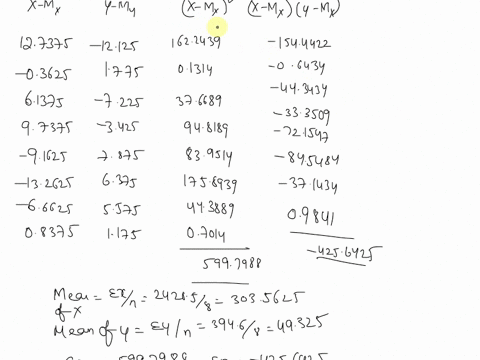 X-Mx Y-My (X-Mx) (X-Mx)(Y-Mx)
12.7375 -12.125 162.2439 -154.4422
-0.3625 1.775 0.1314 -0.6434
6.1375 -7.225 37.6689 -44.3434
9.7375 -3.425 94.8189 -33.3509
-9.1625 7.875 83.9514 -72.1547
-13.2625 6.375 175.8939 -84.5484
-6.6625 5.575 44.3889 -37.1434
0.8375 1.175 0.7014 0.9841
599.7988 -425.6425
Mean of X = Ex/n = 2428.5/8 = 303.5625
Mean of y = Ey/n = 394.6/8 = 49.325